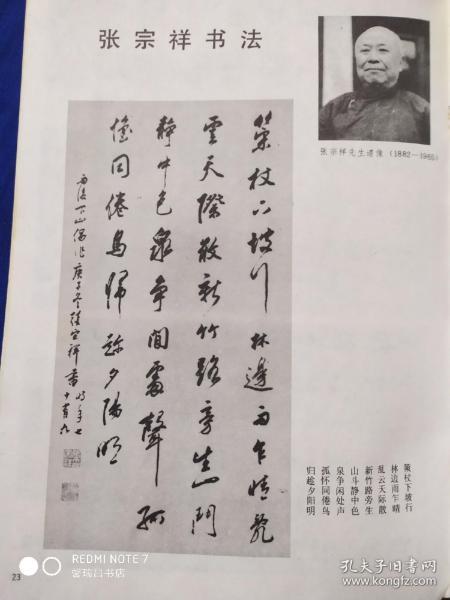 张宗祥书法
张宗祥先生遗像 (1882—1965)
策杖下坡行林邊雨乍晴亂
雲天際散新竹路旁生山鬥
靜中色泉爭閒處聲孤
懷同倦鳥歸趁夕陽明
雨後下山偶作庚子冬張宗祥書時年七十有九
策杖下坡行
林边雨乍晴
乱云天际散
新竹路旁生
山斗静中色
泉争闲处声
孤怀同倦鸟
归趁夕阳明
23
REDMI NOTE 7
孔夫子旧书网
www.kongfz.com